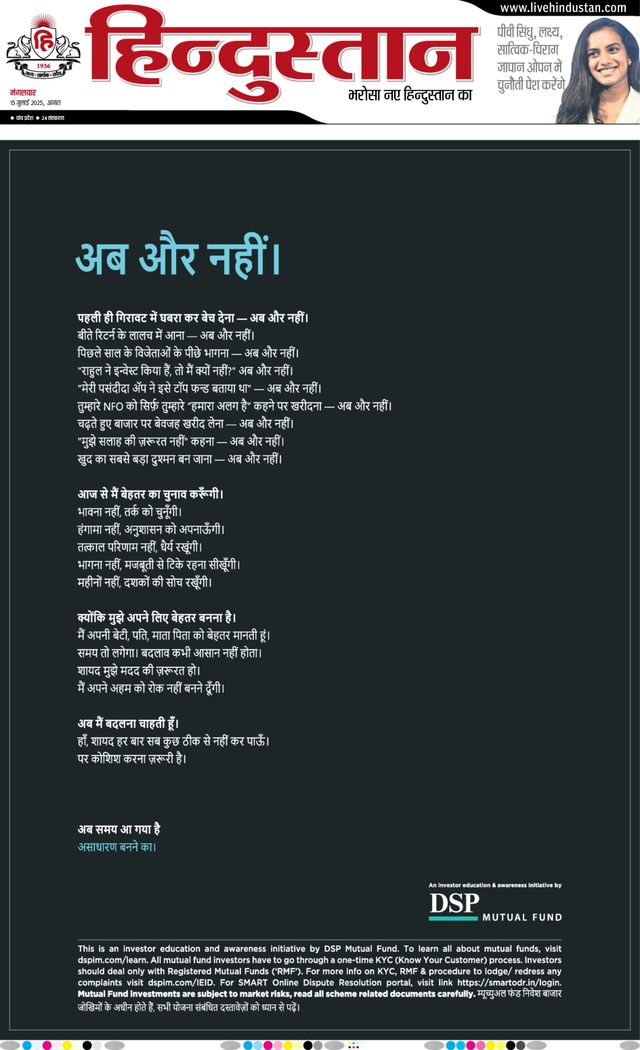 www.livehindustan.com
हिन्दुस्तान
हि
1936
भरोसा नए हिन्दुस्तान का
मंगलवार
15 जुलाई 2025, आगरा
● पांच प्रदेश ● 24 संस्करण
पीवी सिंधु, लक्ष्य,
सात्विक-चिराग
जापान ओपन में
चुनौती पेश करेंगे
अब और नहीं।
पहली ही गिरावट में घबरा कर बेच देना — अब और नहीं।
बीते रिटर्न के लालच में आना — अब और नहीं।
पिछले साल के विजेताओं के पीछे भागना — अब और नहीं।
"राहुल ने इन्वेस्ट किया हैं, तो मैं क्यों नहीं?" अब और नहीं।
"मेरी पसंदीदा ॲप ने इसे टॉप फन्ड बताया था" — अब और नहीं।
तुम्हारे NFO को सिर्फ़ तुम्हारे "हमारा अलग है" कहने पर खरीदना — अब और नहीं।
चढ़ते हुए बाजार पर बेवजह खरीद लेना — अब और नहीं।
"मुझे सलाह की ज़रूरत नहीं" कहना — अब और नहीं।
खुद का सबसे बड़ा दुश्मन बन जाना — अब और नहीं।
आज से मैं बेहतर का चुनाव करूँगी।
भावना नहीं, तर्क को चुनूँगी।
हंगामा नहीं, अनुशासन को अपनाऊँगी।
तत्काल परिणाम नहीं, धैर्य रखूंगी।
भागना नहीं, मजबूती से टिके रहना सीखूँगी।
महीनों नहीं, दशकों की सोच रखूँगी।
क्योंकि मुझे अपने लिए बेहतर बनना है।
मैं अपनी बेटी, पति, माता पिता को बेहतर मानती हूं।
समय तो लगेगा। बदलाव कभी आसान नहीं होता।
शायद मुझे मदद की ज़रूरत हो।
मैं अपने अहम को रोक नहीं बनने दूँगी।
अब मैं बदलना चाहती हूँ।
हाँ, शायद हर बार सब कुछ ठीक से नहीं कर पाऊँ।
पर कोशिश करना ज़रूरी है।
अब समय आ गया है
असाधारण बनने का।
An investor education & awareness initiative by
DSP
MUTUAL FUND
This is an investor education and awareness initiative by DSP Mutual Fund. To learn all about mutual funds, visit
dspim.com/learn. All mutual fund investors have to go through a one-time KYC (Know Your Customer) process. Investors
should deal only with Registered Mutual Funds ('RMF'). For more info on KYC, RMF & procedure to lodge/ redress any
complaints visit dspim.com/IEID. For SMART Online Dispute Resolution portal, visit link https://smartodr.in/login.
Mutual Fund Investments are subject to market risks, read all scheme related documents carefully. म्यूच्युअल फंड निवेश बाजार
जोखिमों के अधीन होते हैं, सभी योजना संबंधित दस्तावेज़ों को ध्यान से पढ़ें।